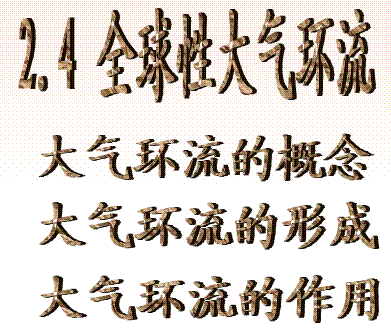 2.4 全球性大气环流
大气环流的概念
大气环流的形成
大气环流的作用